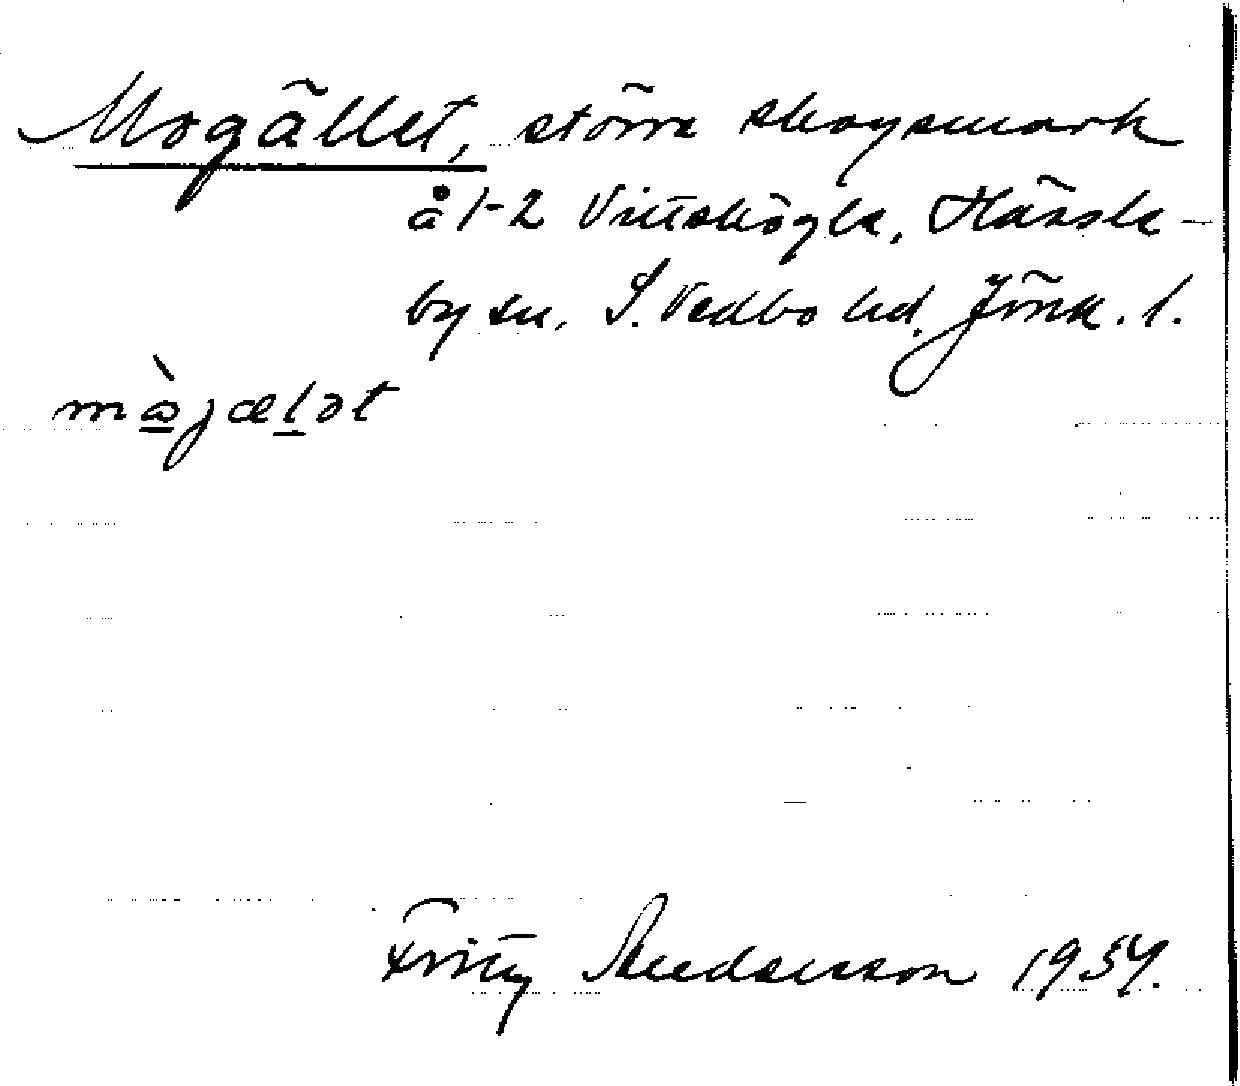 Mogället, större skogsmark
å 1-2 Vittskögle, Hässle-
by sn, S. Vedbo hd. Jönk. l.
mòjælət
Fritz 1954.